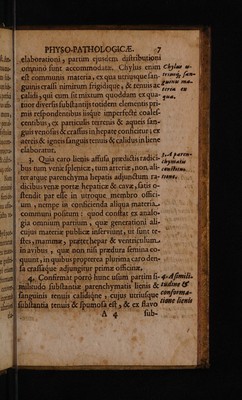 PHYSO-PATHOLOGICÆ. 7
elaborationi, partim ejusdem distributioni
omnino sint accommodatæ. Chylus enim
est communis materia, ex qua utriusque san-
guinis crassi nimirum frigidique, & tenuis ac
calidi, qui cum sit mixtum quoddam ex qua-
tuor diversis substantijs totidem elementis pri-
mis respondentibus iisque imperfectè coales-
centibus, ex particulis terreis & aqueis san-
guis venosus & crassus in hepate conficitur; ex
aereis & igneis sanguis tenuis & calidus in liene
elaboratur.
Chylus u-
triusq; san-
guinis ma-
teria ex
qua.
3. Quia caro lienis affusa prædictis radici-
bus tum venæ splenicæ, tum arteriæ, non ali-
ter atque parenchyma hepatis adjunctum ra-
dicibus venæ portæ hepaticæ & cavæ, satis o-
stendit par esse in utroque membro offici-
um, nempe in conficienda aliqua materia
communi positum: quod constat ex analo-
gia omnium partium, quæ generationi ali-
cujus materiæ publicæ inserviunt, ut sunt te-
stes, mammæ, præterhepar & ventriculum
in avibus, quæ non nisi prædura semina eo-
quunt, in quibus propterea plurima caro den-
sa crassaque adjungitur primæ officinæ.
3. A paren-
chymatis
constitu-
tione.
4. Confirmat porro hunc usum partim si-
militudo substantiæ parenchymatis lienis &
sanguinis tenuis calidique, cujus utriusque
substantia tenuis & spumosa est, & ex flavo
4. A simili-
tudine &
conforma-
tione lienis
A 4 sub-